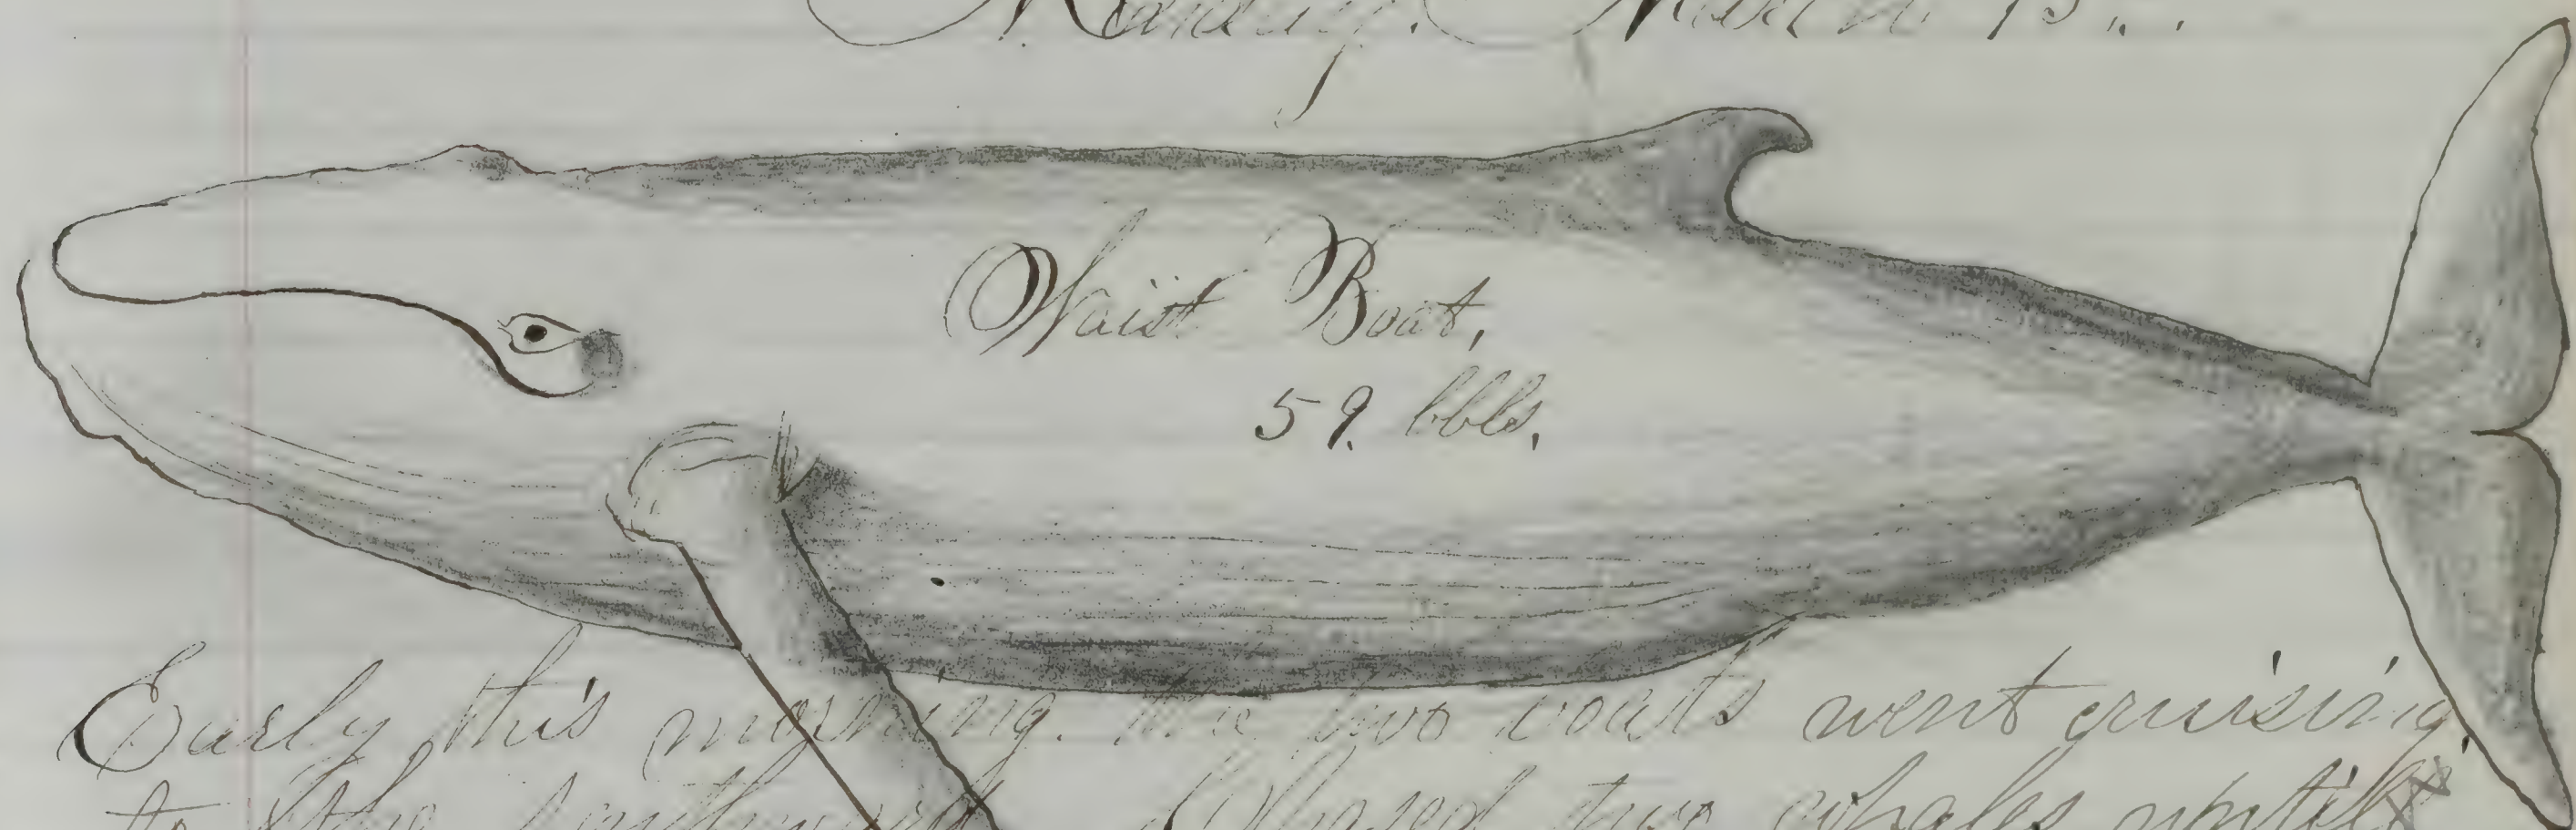 Monday. March 15..
Waist Boat,
59. bbls.
Early this morning. the two boats went cruising
to the southward. Chased two whales until